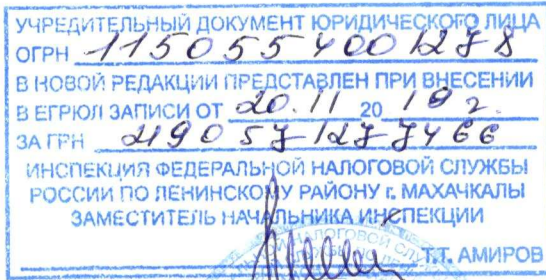 УЧРЕДИТЕЛЬНЫЙ ДОКУМЕНТ ЮРИДИЧЕСКОГО ЛИЦА
ОГРН 1150554001278
В НОВОЙ РЕДАКЦИИ ПРЕДСТАВЛЕН ПРИ ВНЕСЕНИИ
В ЕГРЮЛ ЗАПИСИ ОТ 20.11 20 19 г.
ЗА ГРН 2190571277466
ИНСПЕКЦИЯ ФЕДЕРАЛЬНОЙ НАЛОГОВОЙ СЛУЖБЫ
РОССИИ ПО ЛЕНИНСКОМУ РАЙОНУ г. МАХАЧКАЛЫ
ЗАМЕСТИТЕЛЬ НАЧАЛЬНИКА ИНСПЕКЦИИ
НАЛОГОВОЙ
Т.Т. АМИРОВ